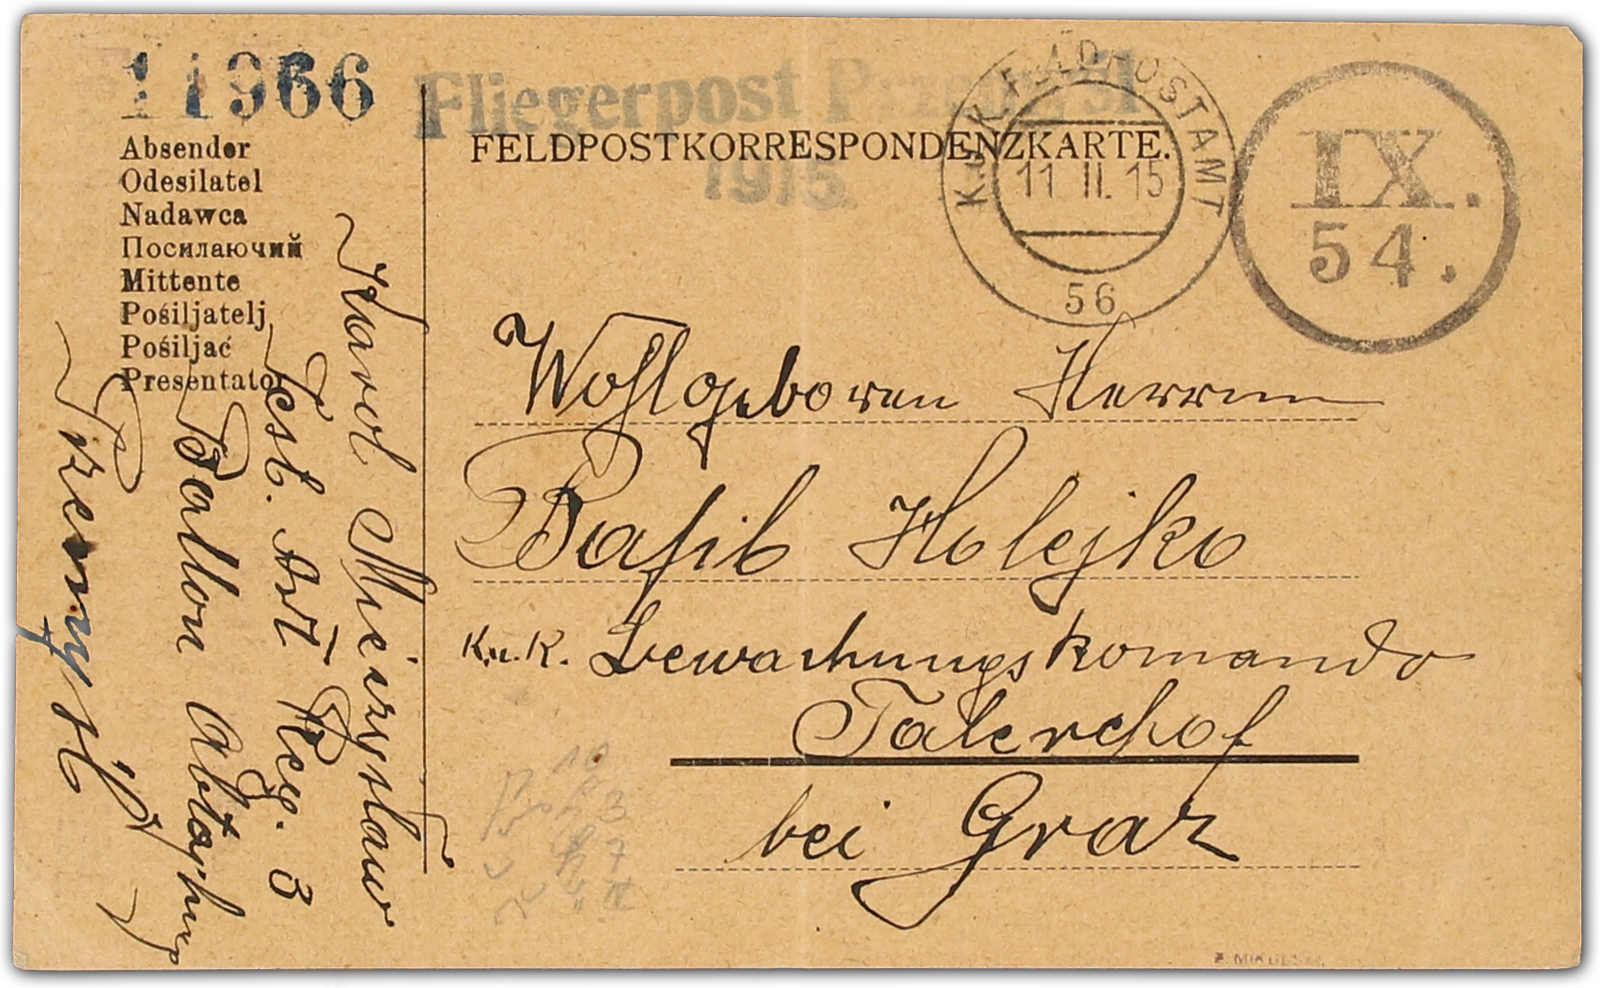 11966
Fliegerpost Przemyśl
1915.
K.u.K. FELDPOSTAMT
11 II. 15
56
IX.
54.
FELDPOSTKORRESPONDENZKARTE.
Absender
Odesilatel
Nadawca
Посилаючий
Mittente
Pošiljatelj
Pošiljač
Presentator
Karol Mieczysław
Fest. Art. Reg. 3
Ballon Abteilung
Przemyśl
Wohlgeboren Herrn
Basil Holejko
K.u.K. Bewachungskomando
Talerhof
bei Graz